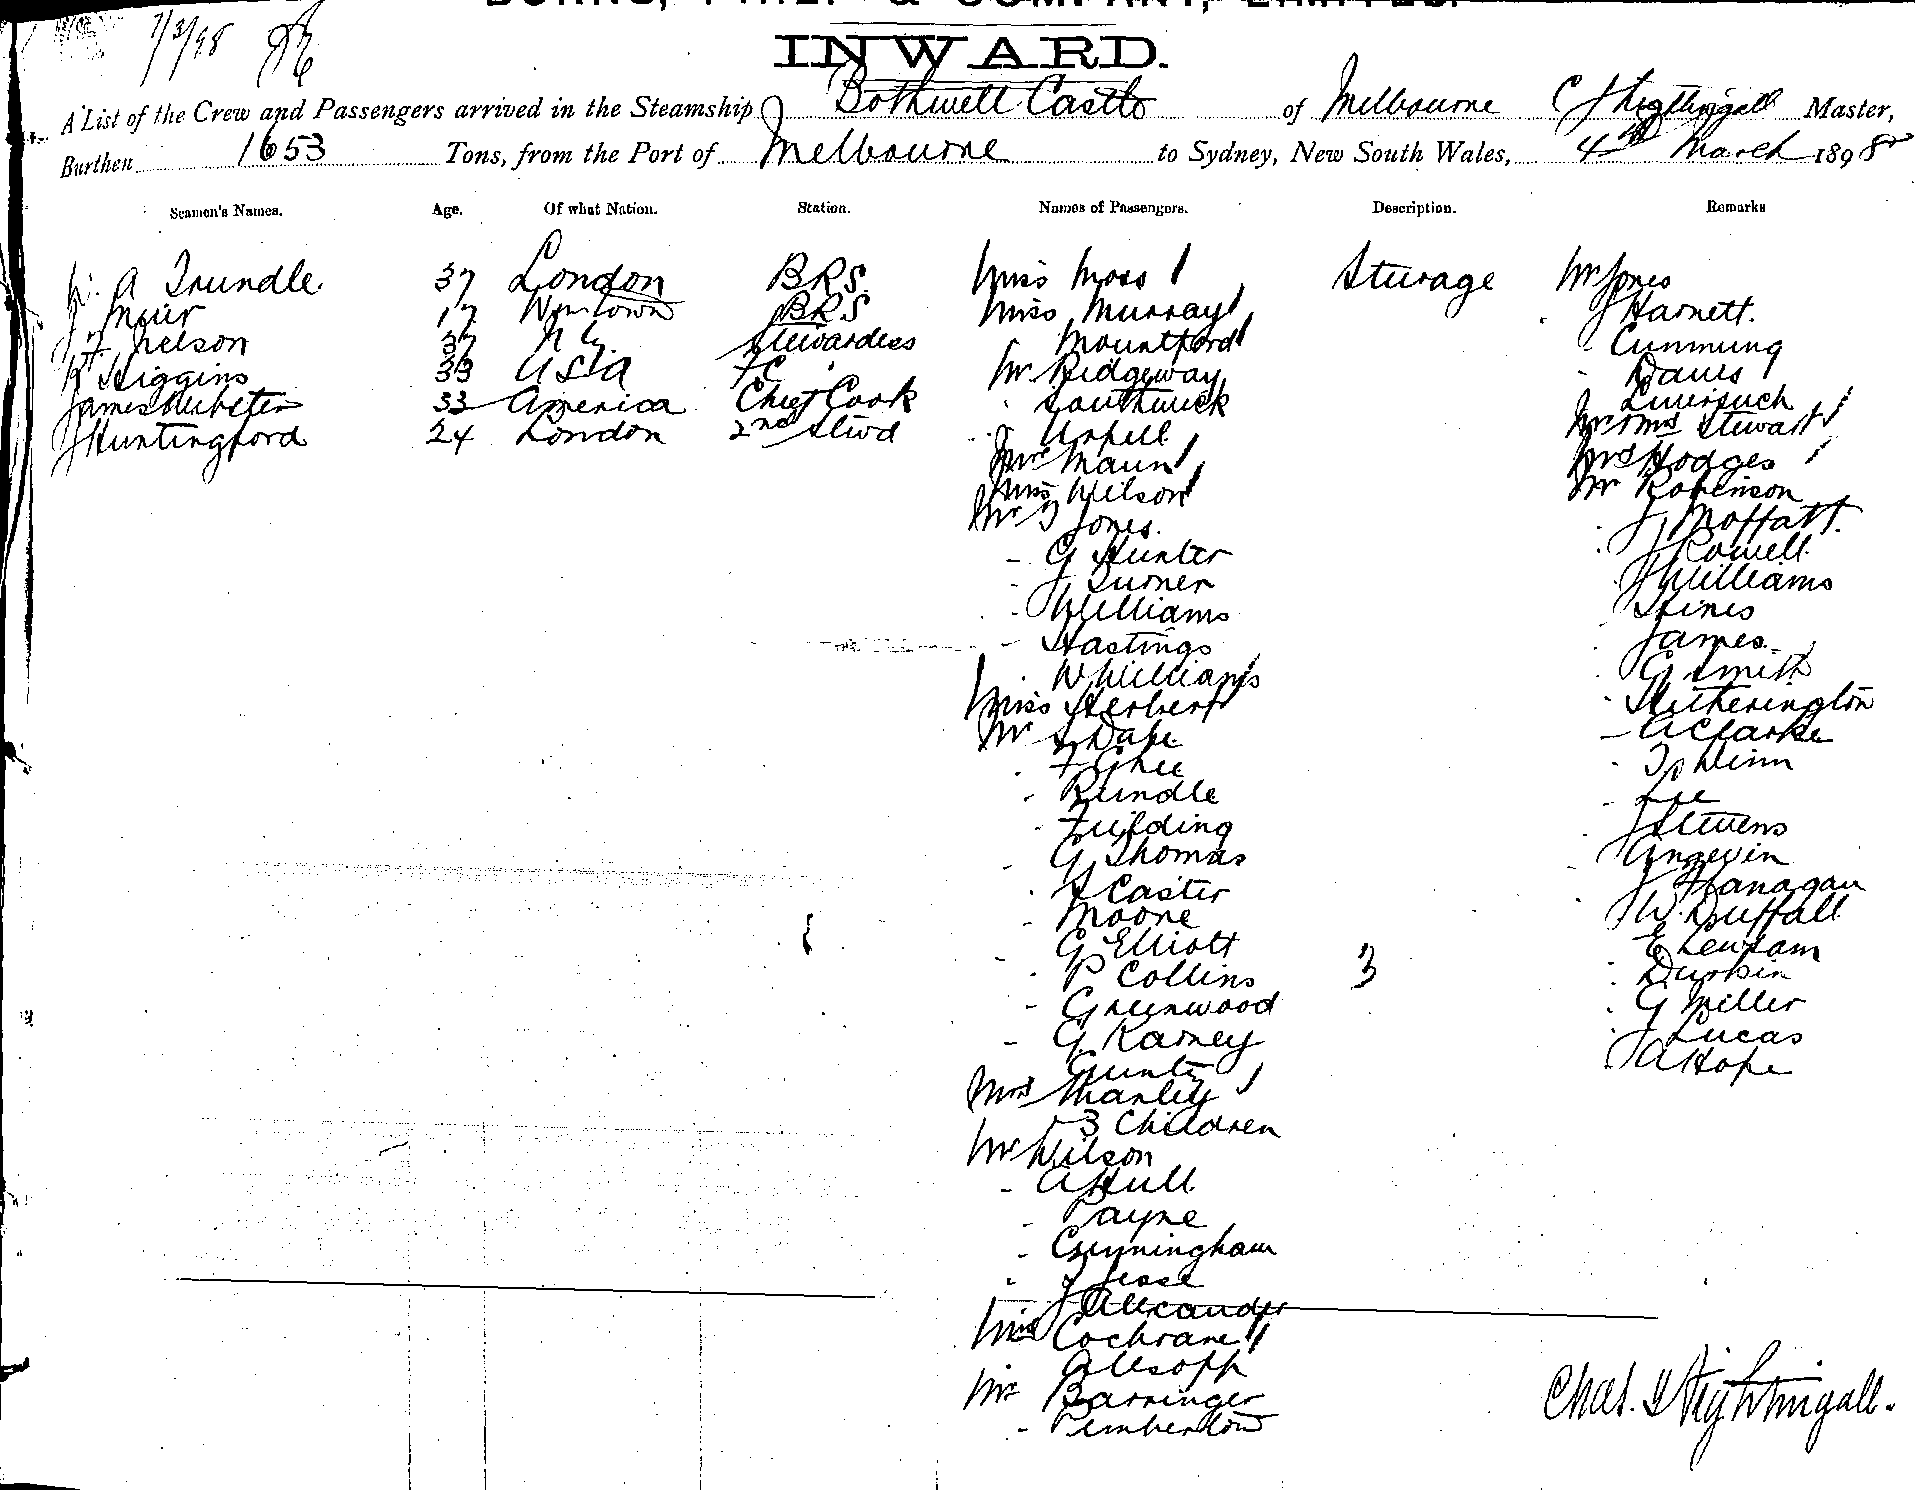 BURNS, PHILP & COMPANY, LIMITED.
7/3/98
INWARD.
A List of the Crew and Passengers arrived in the Steamship Bothwell Castle of Melbourne C J Nightingall Master,
Burthen 1653 Tons, from the Port of Melbourne to Sydney, New South Wales, 4th March 1898
Seamen's Names. Age. Of what Nation. Station. Names of Passengers. Description. Remarks
W. A Trundle 37 London BRS Miss Moss Sturage Mr Jones
J Muir 17 BRS Miss Murray J Harnett.
Nelson 37 Stewardess Mountford Cummung
R Higgins 33 Asia FC Mr Ridgeway Davis
James Webster 33 America Chief Cook Southwick
J Huntingford 24 London 2nd Stwd Mr & Mrs Stewart
Maun Mrs Hodges
Miss Wilson Mr Robenson
Mr J Jones. J Moffatt.
- G Hunter J Rowell
- J Turner J Williams
- Williams Hines
- Hastings James
W Williams G Smith
Miss Herbert Hetherington
Mr A Clarke
F Ghee Winn
- Rundle - Lee
- Fuilding J Stevens
- G Thomas Angevin
Caster J Flanagan
- Moore W. Duffall
- G Elliott E
- P Collins 3 Durkin
- Greenwood G Miller
- G Karney J Lucas
Gunte A Hope
Mrs Manley
3 Children
Mr Wilson
- A Hull
- Payne
- Cunningham
Jesse
J Alexander
Miss Cochrane
Allsopp
Mr Barringer
- Pemberton
Chas. J Nightingall.